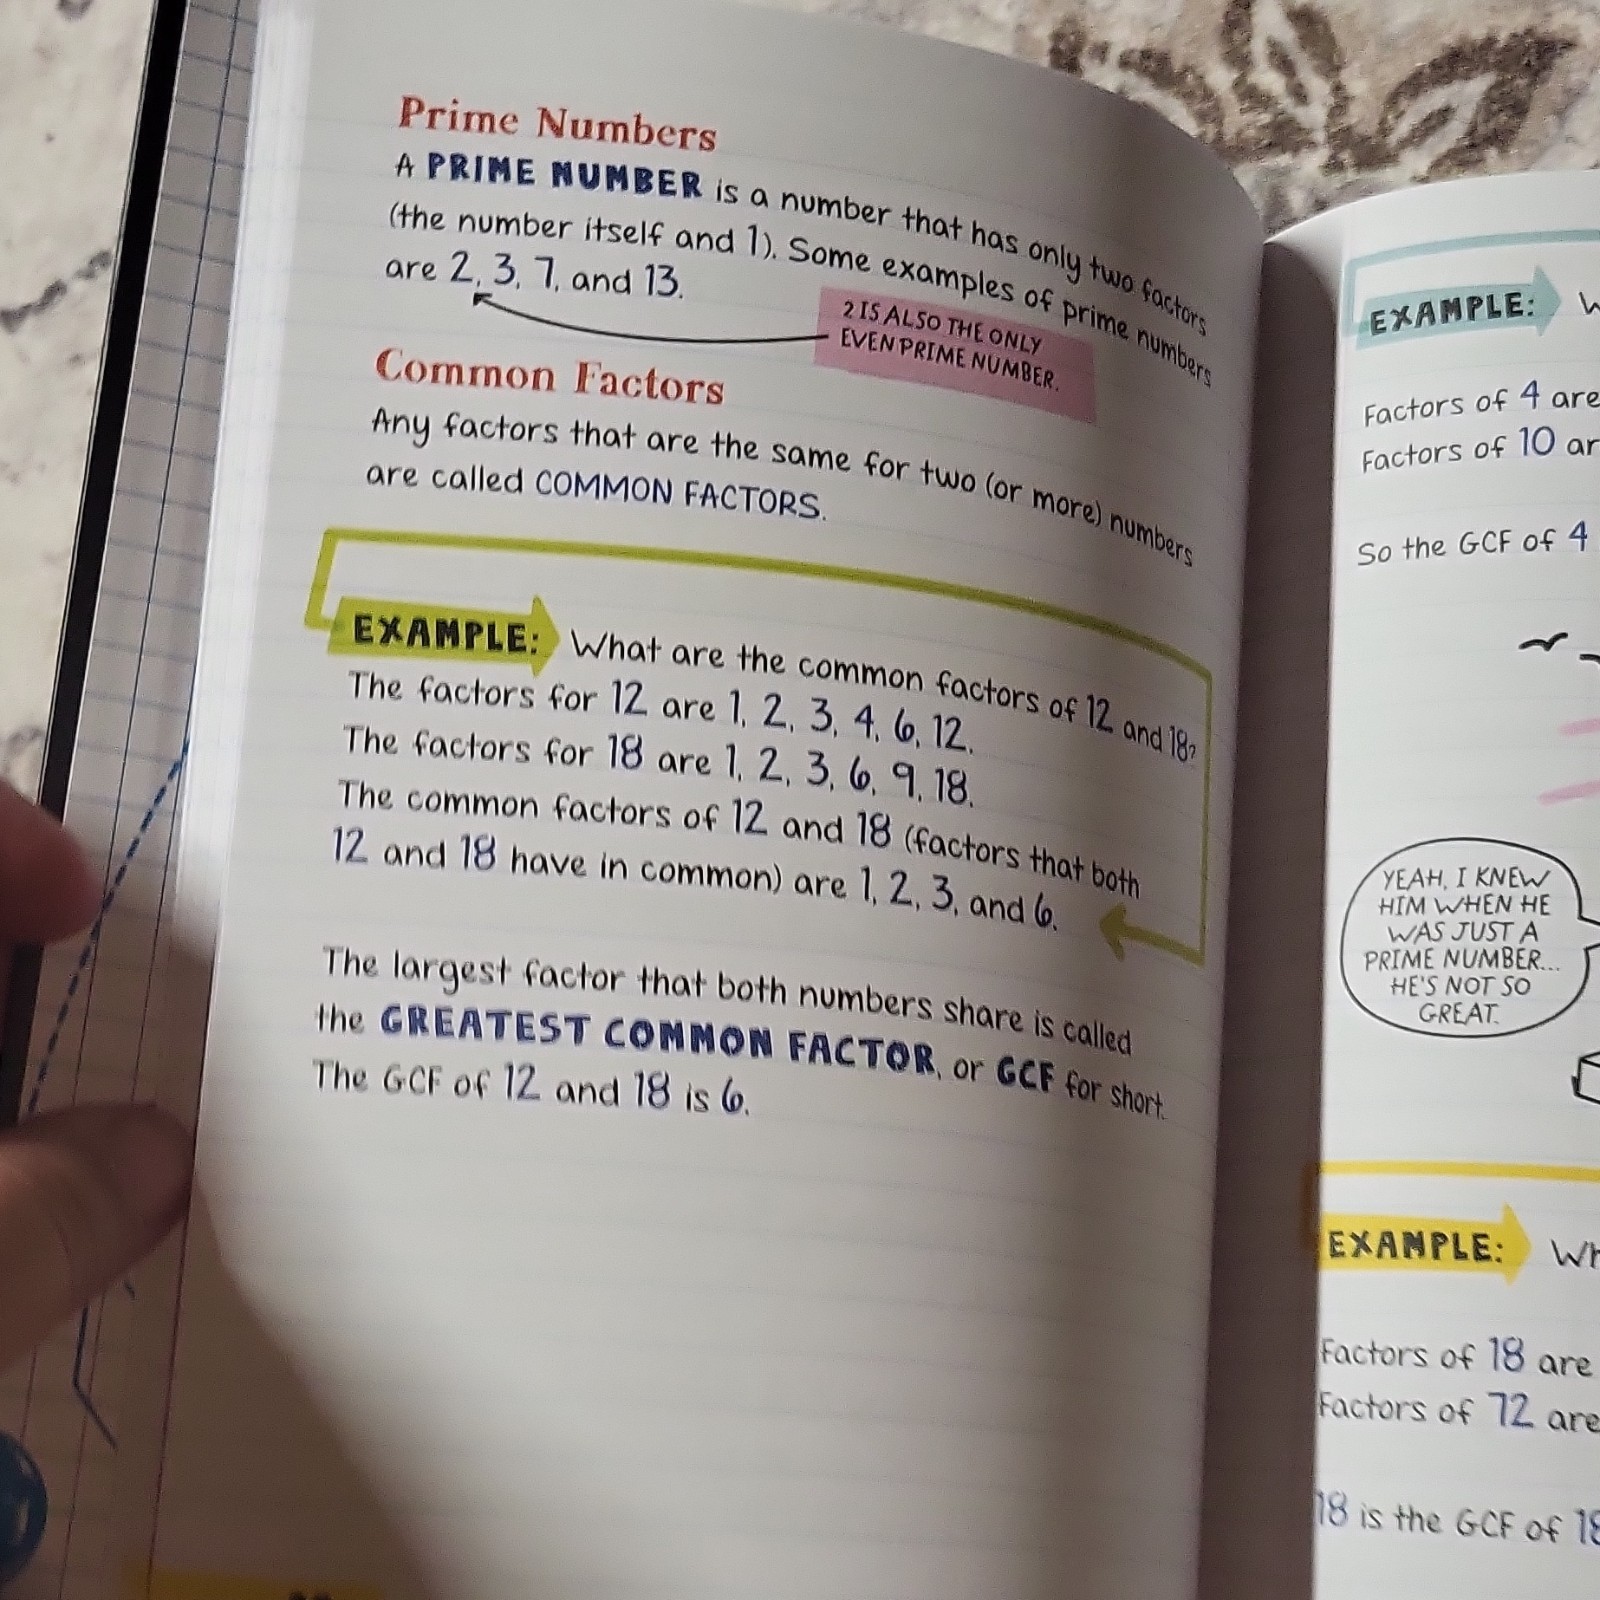 Prime Numbers
A PRIME NUMBER is a number that has only two factors
(the number itself and 1). Some examples of prime numbers
are 2, 3, 7, and 13.
2 IS ALSO THE ONLY
EVEN PRIME NUMBER.
Common Factors
Any factors that are the same for two (or more) numbers
are called COMMON FACTORS.
EXAMPLE: What are the common factors of 12 and 18?
The factors for 12 are 1, 2, 3, 4, 6, 12.
The factors for 18 are 1, 2, 3, 6, 9, 18.
The common factors of 12 and 18 (factors that both
12 and 18 have in common) are 1, 2, 3, and 6.
The largest factor that both numbers share is called
the GREATEST COMMON FACTOR, or GCF for short.
The GCF of 12 and 18 is 6.
EXAMPLE:
Factors of 4 are
Factors of 10
So the GCF of 4
YEAH, I KNEW
HIM WHEN HE
WAS JUST A
PRIME NUMBER...
HE'S NOT SO
GREAT.
EXAMPLE:
Factors of 18 are
Factors of 72 are
18 is the GCF of